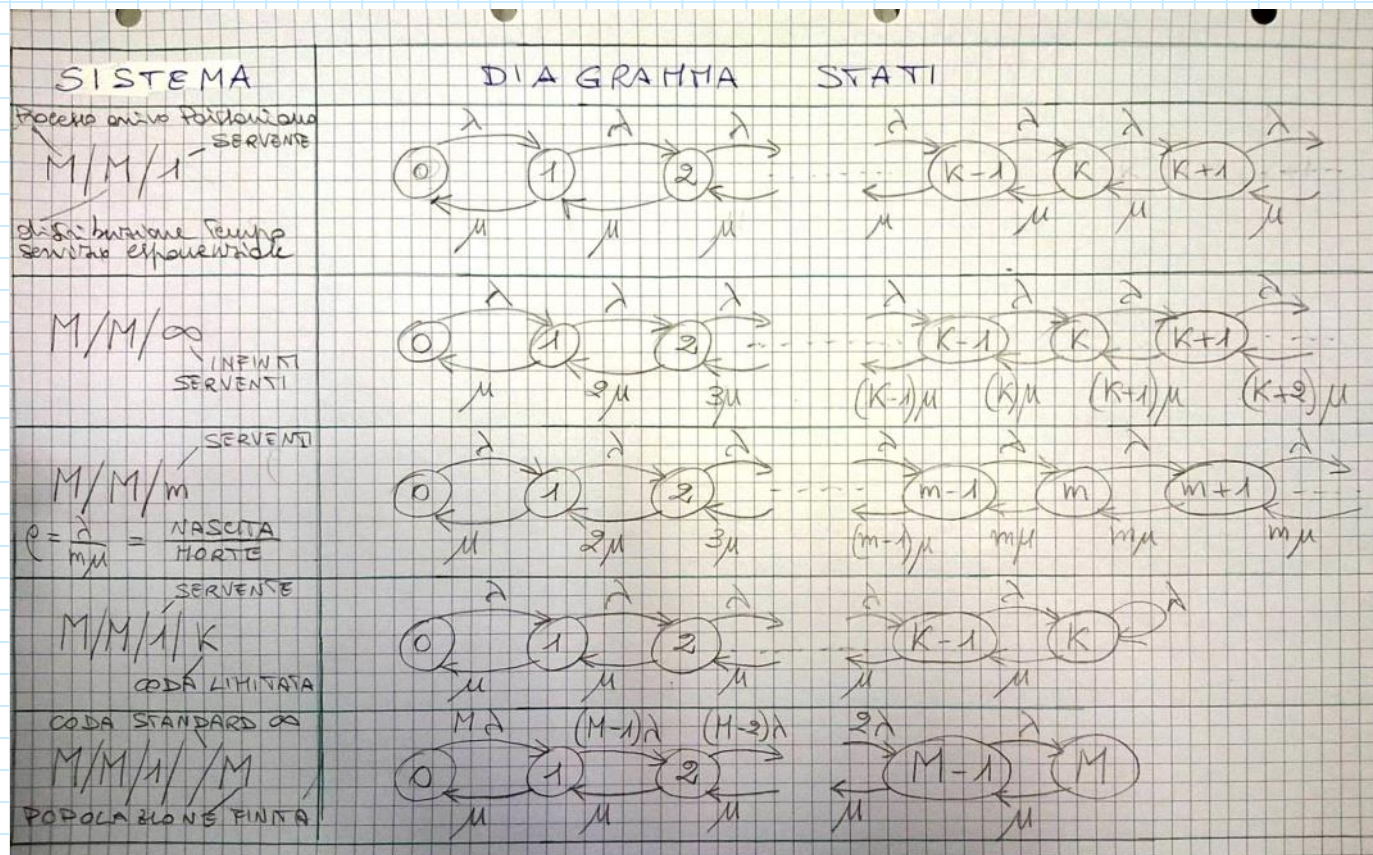 SISTEMA
DIAGRAMMA STATI
Processo arrivo Poissoniano
SERVENTE
M/M/1
distribuzione tempo
servizio esponenziale
λ λ λ λ λ λ λ
0 1 2 K-1 K K+1
μ μ μ μ μ μ μ
M/M/∞
INFINITI
SERVENTI
λ λ λ λ λ λ λ
0 1 2 K-1 K K+1
μ 2μ 3μ (K-1)μ (K)μ (K+1)μ (K+2)μ
SERVENTI
M/M/m
ρ = λ/mμ = NASCITA/MORTE
λ λ λ λ λ λ λ
0 1 2 m-1 m m+1
μ 2μ 3μ (m-1)μ mμ mμ mμ
SERVENTE
M/M/1/K
CODA LIMITATA
λ λ λ λ λ λ
0 1 2 K-1 K
μ μ μ μ μ
CODA STANDARD ∞
M/M/1/ /M
POPOLAZIONE FINITA
Mλ (M-1)λ (M-2)λ 2λ λ
0 1 2 M-1 M
μ μ μ μ μ